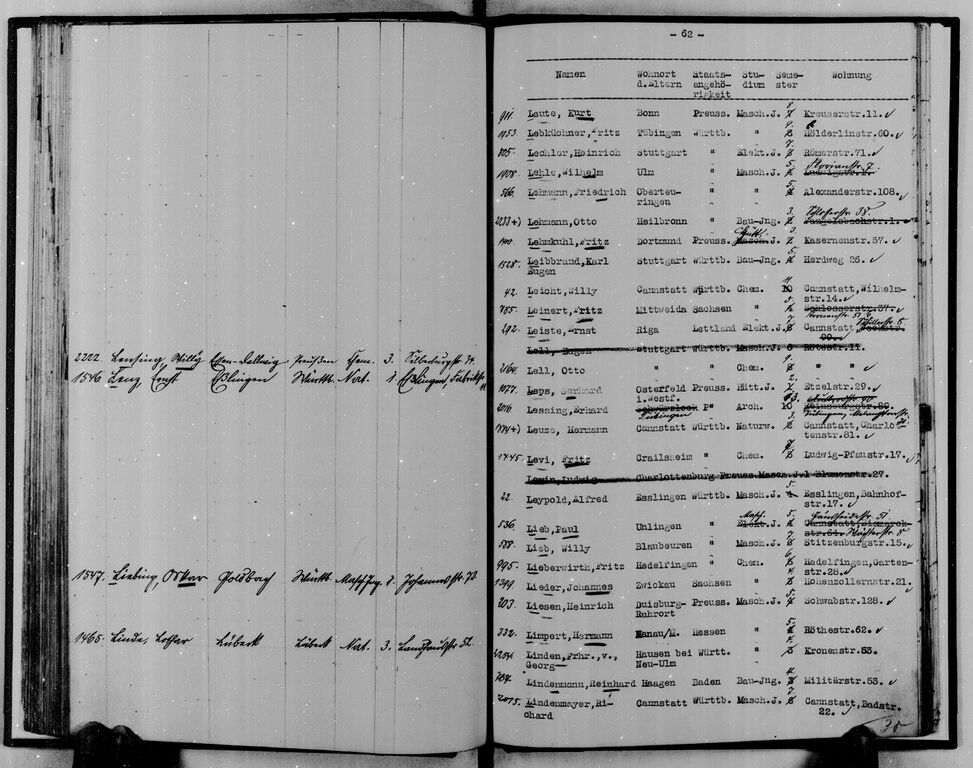 2202. Lensing, Willy Essen-Dellwig Preußen Chem. 3.
1546 Lenz, Ernst Eßlingen Württ. Nat. Eßlingen,
1547. Liebing, Oskar Goldbach Württ. Masch.Ing. Johannesstr
1465. Linde, Lothar Lübeck Lübeck Nat. 3. Landhausstr
- 62 -
Namen Wohnort Staats- Stu- Seme- Wohnung
d.Eltern angehö- dium ster
rigkeit
911. Laute, Kurt Bonn Preuss. Masch.J. 8. Kreuserstr.11.
1053. Lebküchner,Fritz Tübingen Württb. " Hölderlinstr.60.
805. Lechler,Heinrich Stuttgart " Elekt.J. 7. Römerstr.71.
1908. Lehle,Wilhelm Ulm " Masch.J. 5.
566. Lehmann,Friedrich Oberteu- " " 5. Alexanderstr.108.
ringen
Lehmann,Otto Heilbronn " Bau-Jng. 3. Schloßstr 38.
190. Lehmkuhl,Fritz Dortmund Preuss. Hütt. J. 3. Kasernenstr.37.
1528. Leibbrand,Karl Stuttgart Württb. Bau-Jng. 5. Herdweg 26.
Eugen
42. Leicht,Willy Cannstatt Württb. Chem. 11. Cannstatt,Wilhelm-
str.14.
785. Leinert,Fritz Mittweida Sachsen " 5. Schlosserstr.37.
292. Leiste,Ernst Riga Lettland Elekt.J. Cannstatt,
Lell, Eugen Stuttgart Württb. Masch.J. 8 Rötestr.11.
2164. Lell, Otto " " Chem. 9. " "
1027. Leps, Gerhard Osterfeld Preuss. Hütt.J. 2. Etzelstr.29.
i.Westf.
2016 Lessing,Erhard Tübingen " Arch. 10
Leuze, Hermann Cannstatt Württb. Naturw. 3. Cannstatt,Charlot-
tenstr.61.
1445. Levi, Fritz Crailsheim " Chem. 7 Ludwig-Pfaustr.17.
Lewin,Ludwig Charlottenburg Preuss.Masch.J.1 Blumenstr.27.
22. Leypold,Alfred Esslingen Württb. Masch.J. 5. Esslingen,Bahnhof-
str.17.
536. Lieb,Paul Unlingen " Masch. J. 5.
588. Lieb, Willy Blaubeuren " Masch.J. 7 Stitzenburgstr.15.
995. Lieberwirth,Fritz Hedelfingen " Chem. 6. Hedelfingen,Garten-
strasse 28.
1399. Lieder,Johannes Zwickau Sachsen " Hohenzollernstr.21.
203. Liesen,Heinrich Duisburg- Preuss. Masch.J. 5. Schwabstr.128.
Ruhrort
332. Limpert,Hermann Hanau/M. Hessen " 5. Röthestr.62.
Linden,Frhr.,v., Hausen bei Württ. " Kronenstr.53.
Georg Neu-Ulm
Lindenmann,Reinhard Haagen Baden Bau-Jng. 4. Militärstr.53.
2075. Lindenmayer,Ri- Cannstatt Württb. Masch.J. 7 Cannstatt,Badstr.
chard 22.